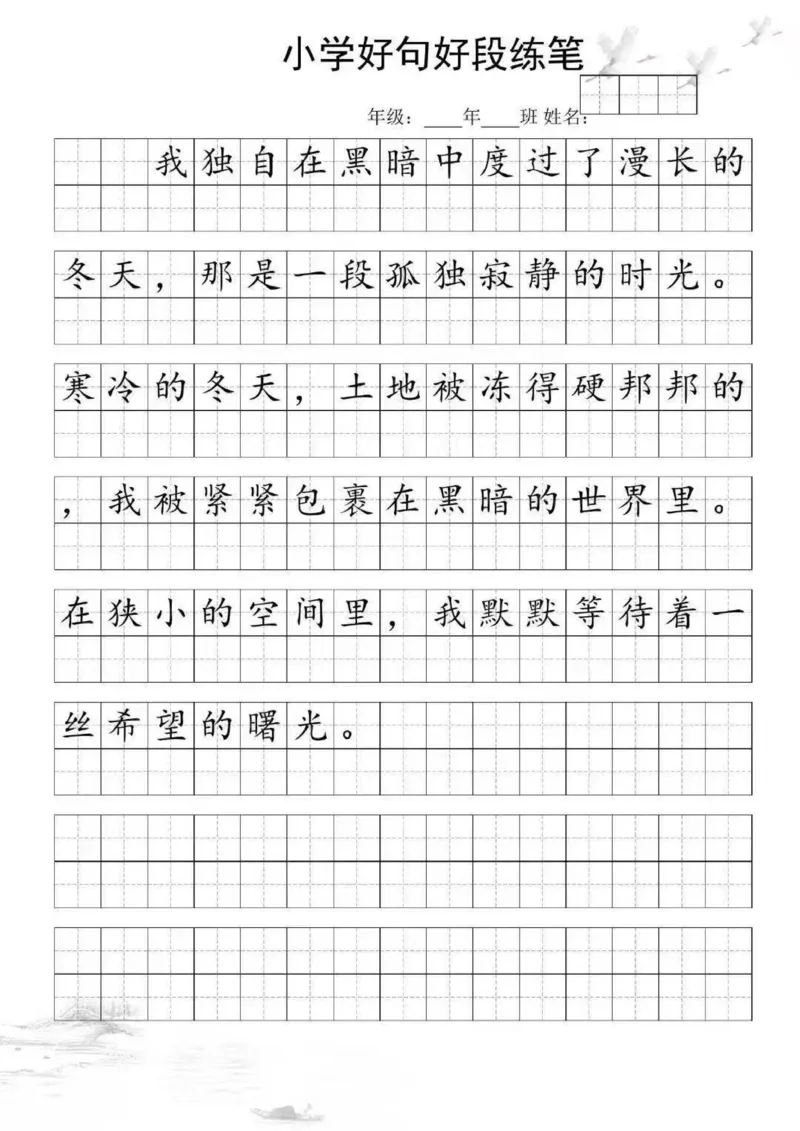 小学好句好段练笔
年级：____年____班 姓名：
我独自在黑暗中度过了漫长的
冬天，那是一段孤独寂静的时光。
寒冷的冬天，土地被冻得硬邦邦的
，我被紧紧包裹在黑暗的世界里。
在狭小的空间里，我默默等待着一
丝希望的曙光。